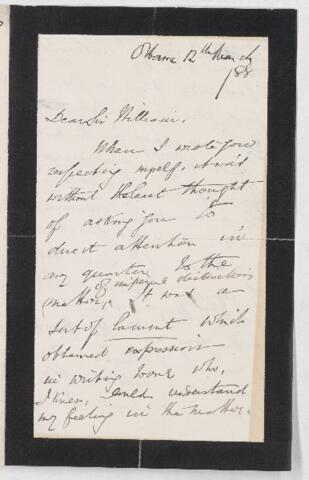 Ottawa 12th March
/88
Dear Sir William,
When I wrote you
respecting myself, it was
without the least thought
of asking you to
direct attention in
any quarter to the
of imperial distinctions
matter, It was a
sort of lament which
obtained expression
in writing to one who,
I knew, could understand
my feeling in the matter.